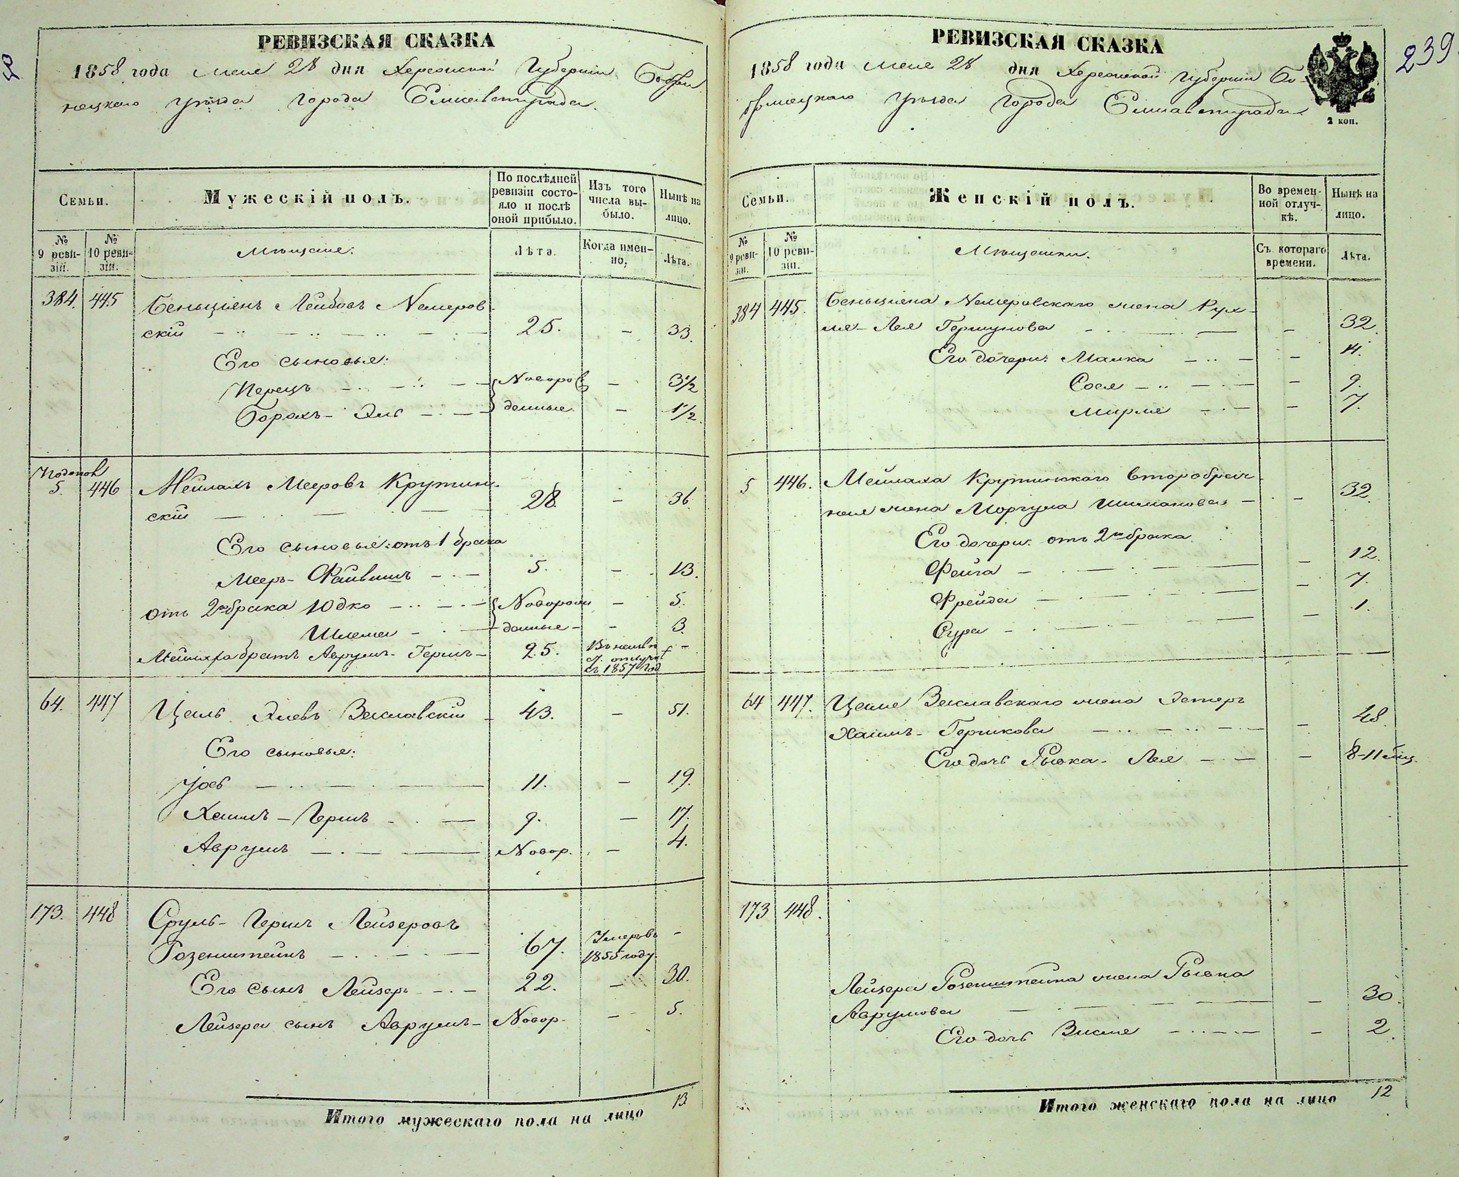 РЕВИЗСКАЯ СКАЗКА
1858 года мая 28 дня Херсонской Губерніи Бобри-
нецкаго уѣзда города Елисаветграда.
Семьи.
Мужескій полъ.
По послѣдней ревизіи состояло и послѣ оной прибыло.
Изъ того числа выбыло.
Нынѣ на лицо.
№ 9 ревизіи.
№ 10 ревизіи.
Мѣщане.
Лѣта.
Когда именно.
Лѣта.
384. 445 Беньціенъ Лейбовъ Немеров-
скій 25. – 33.
Его сыновья:
Перецъ Новорож – 3½
Борохъ-Эль денные – 1½
5. 446 Мейлахъ Мееровъ Крутин-
скій 28. – 36.
Его сыновья: отъ 1 брака
Мееръ-Файвишъ 5. – 13.
отъ 2го брака Юдко Новорож – 5.
Шлема денные – 3.
Мейлаха братъ Аврумъ-Гершъ 25. съ 1857 года –
64. 447 Цаль Элевъ Заславскій 43. – 51.
Его сыновья:
Уось 11. – 19.
Хаимъ-Гершъ 9. – 17.
Аврумъ Новор. – 4.
173. 448 Сруль-Гершъ Лейзеровъ
Розенштейнъ 67. Умеръ въ 1855 году –
Его сынъ Лейзеръ 22. – 30.
Лейзера сынъ Аврумъ Новор. – 5.
Итого мужескаго пола на лицо 13
РЕВИЗСКАЯ СКАЗКА
239
1858 года мая 28 дня Херсонской Губерніи Бо-
бринецкаго уѣзда города Елисаветграда
2 коп.
Семьи.
Женскій полъ.
Во временной отлучкѣ.
Нынѣ на лицо.
№ 9 ревизіи.
№ 10 ревизіи.
Мѣщанки.
Съ котораго времени.
Лѣта.
384 445. Беньціена Немеровскаго жена Рух-
ля-Лея Гершунова – 32.
Его дочери: Малка – 11.
Сося – 9.
Мирля – 7.
5 446. Мейлаха Крутинскаго второбрач-
ная жена Моргуля Шимановая – 32.
Его дочери: отъ 2го брака
Фейга – 12
Фрейда – 7.
Сура – 1.
64 447. Цаля Заславскаго жена Эстеръ
Хаимъ-Гершкова – 48.
Его дочь Рывка-Лея – 8-11 мѣс.
173 448.
Лейзера Розенштейна жена Рывка
Аврумова – 30.
Его дочь Вися – 2.
Итого женскаго пола на лицо 12